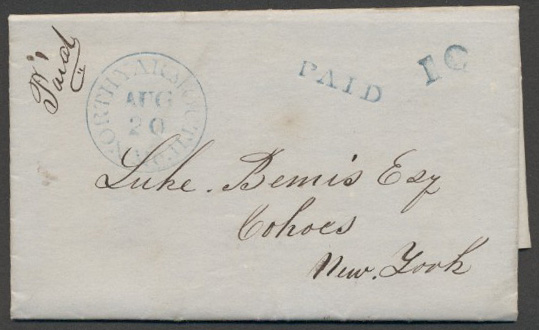 P'aid
NORTH YARMOUTH
AUG
20
ME.
PAID
10
Luke. Bemis Esq
Cohoes
New. York